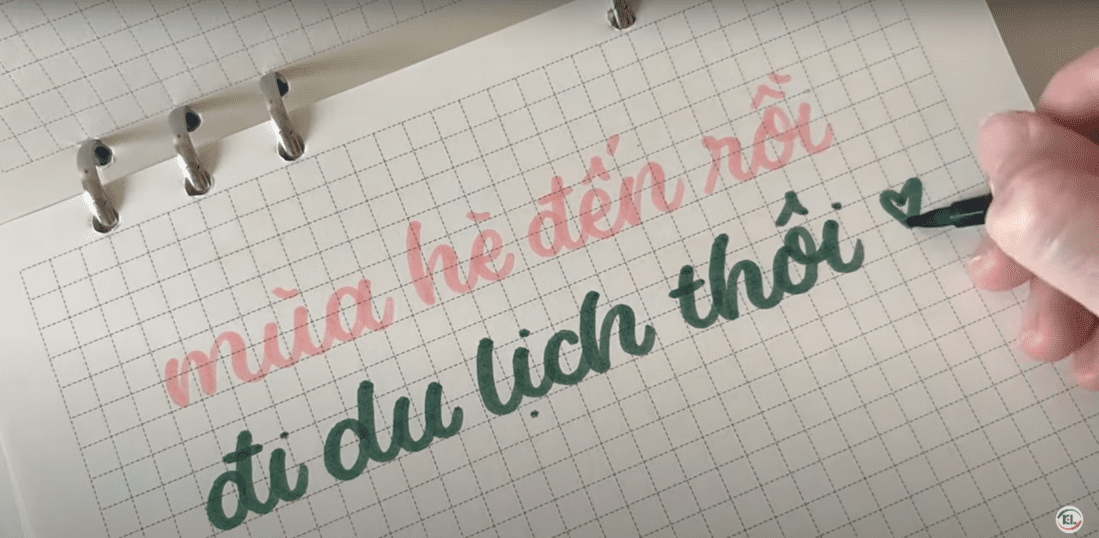 mùa hè đến rồi
đi du lịch thôi